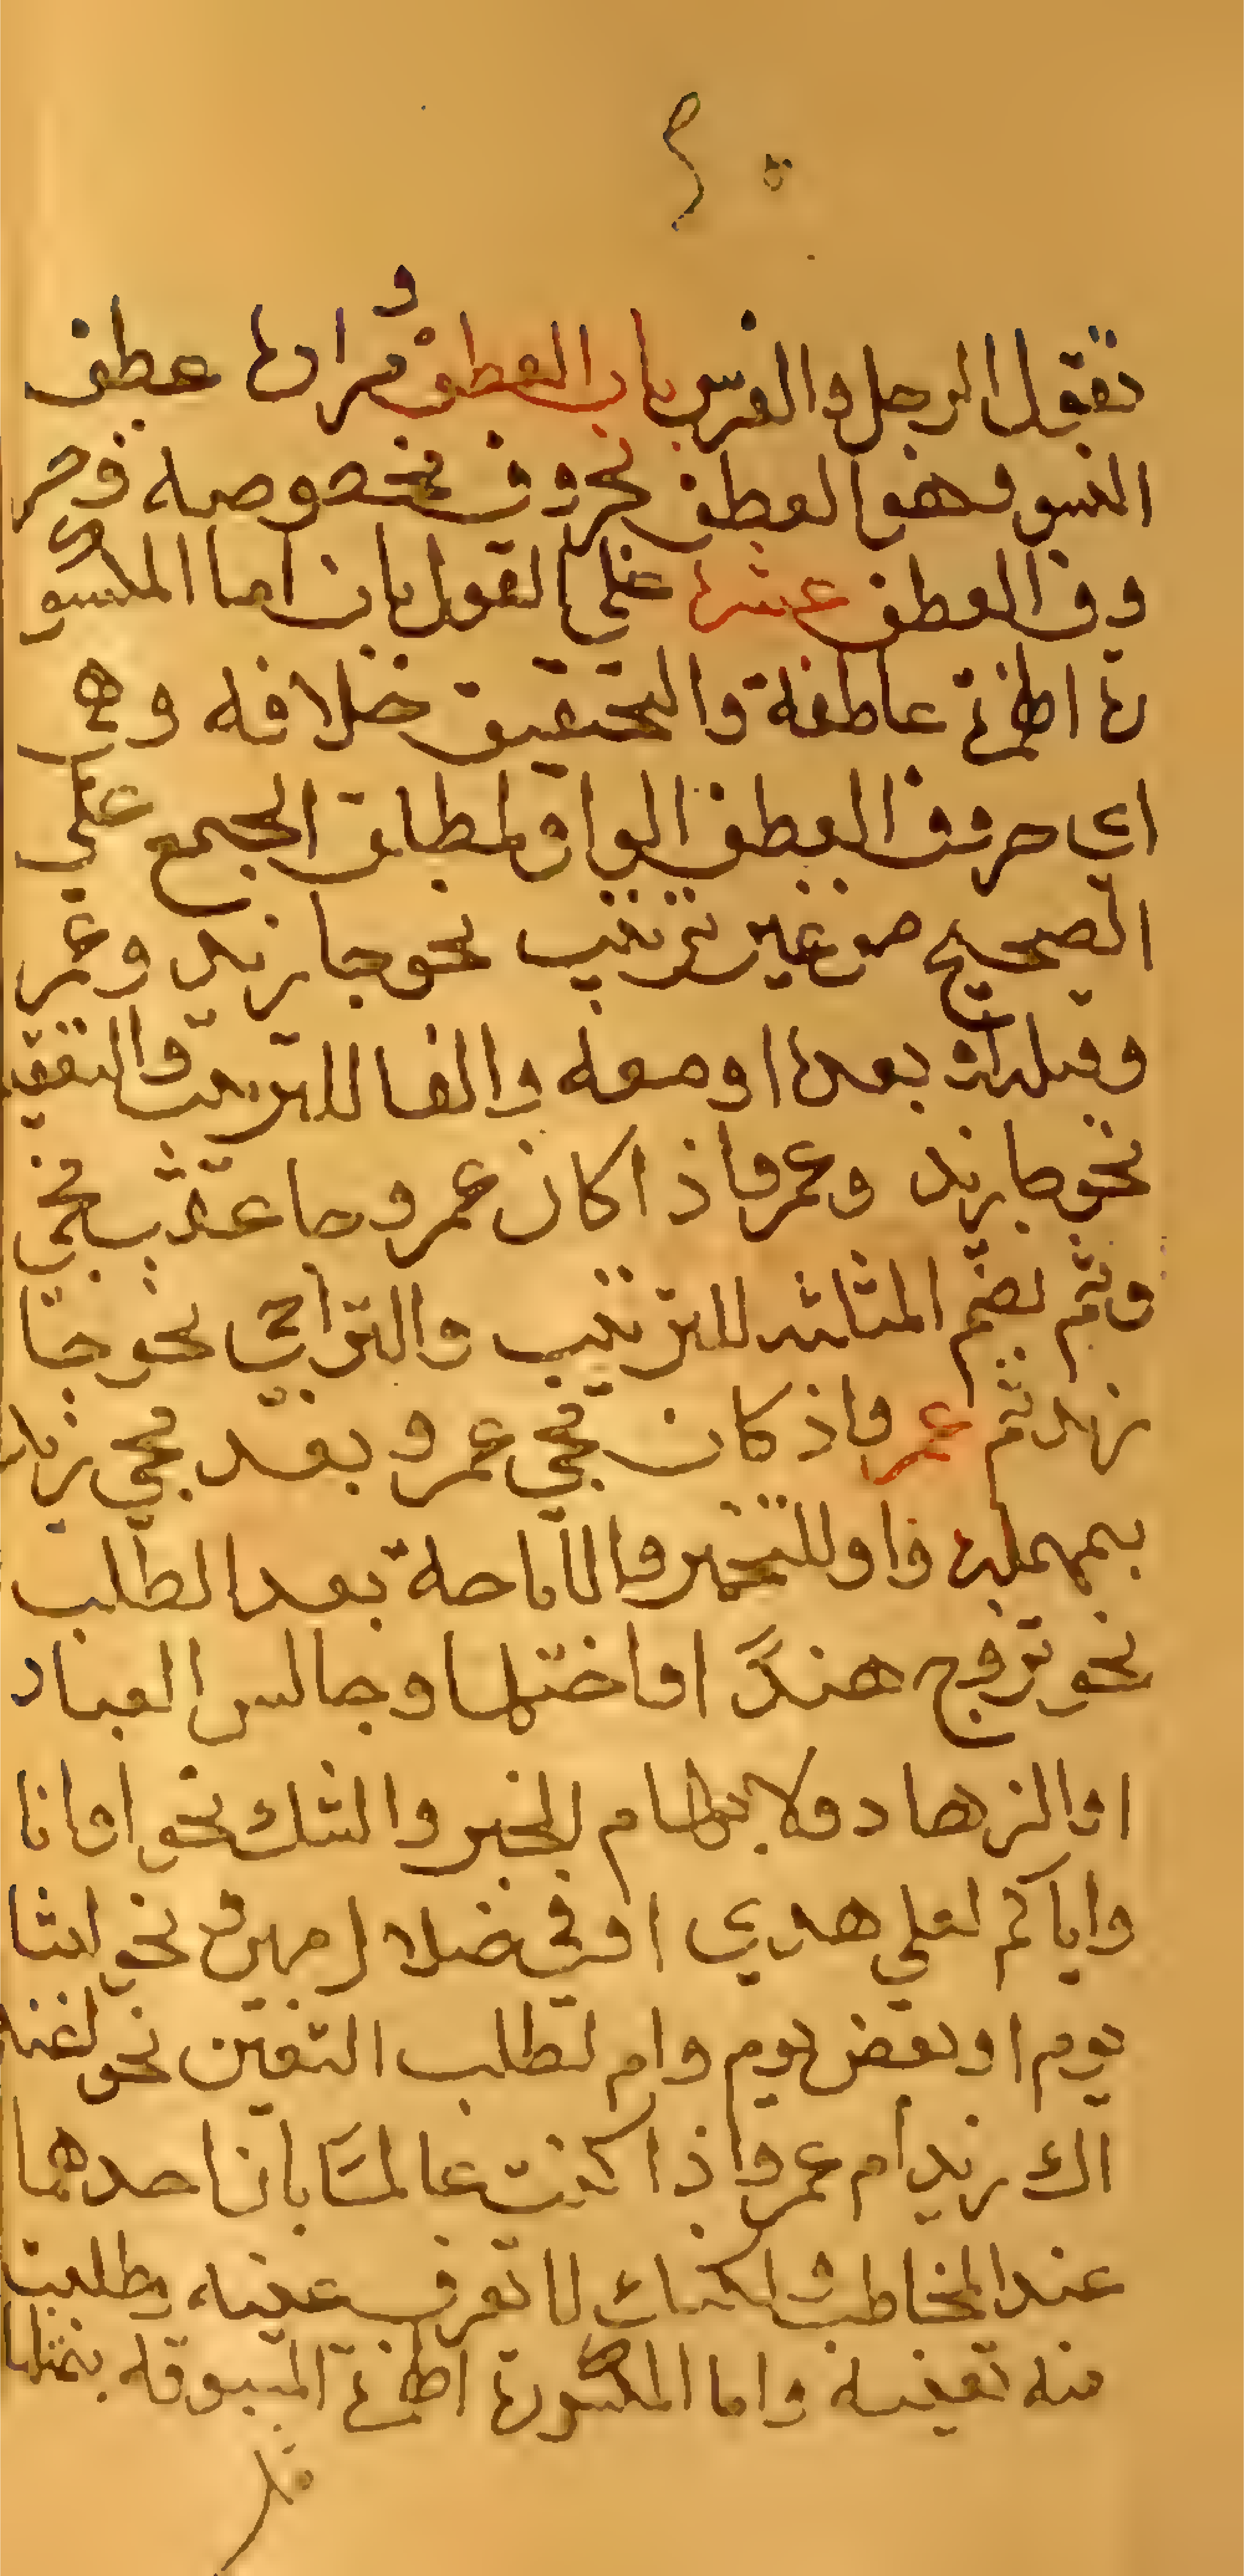 تقول الرجل والفرس باب العطف ومراده عطف
النسق وهو العطف بحروف مخصوصة وحر
وف العطف عشرة علي القول بان اما المكسو
رة الهمزة عاطفة والتحقيق خلافه وهي
اي حروف العطف الواو لمطلق الجمع علي
الصحيح من غير ترتيب نحو جا زيد وعمر
وقبله او بعده او معه والفا للترتيب والتعقيب
نحو جا زيد وعمرو اذا كان عمرو جا عقب مجي
وثم بضم المثلثه للترتيب والتراخي نحو جا
زيد ثم عمرو اذ كان مجي عمرو بعد مجي زيد
بمهملة واو للتخيير والاباحة بعد الطلب
نحو تزوج هندً او اختها وجالس العباد
او الزهاد ولابهام الخبر والشك نحو اوانا
واياكم لعلي هدي او في ضلال مبين نحو لبثنا
يوم او بعض يوم وام لطلب التعين نحو
اك زيد ام عمرو اذا كنت عالما بان احدهما
عند المخاطب لكنك لا تعرف عينه وطلبت
منه تعينه واما المكسورة الهمزة المسبوقة بمثلها